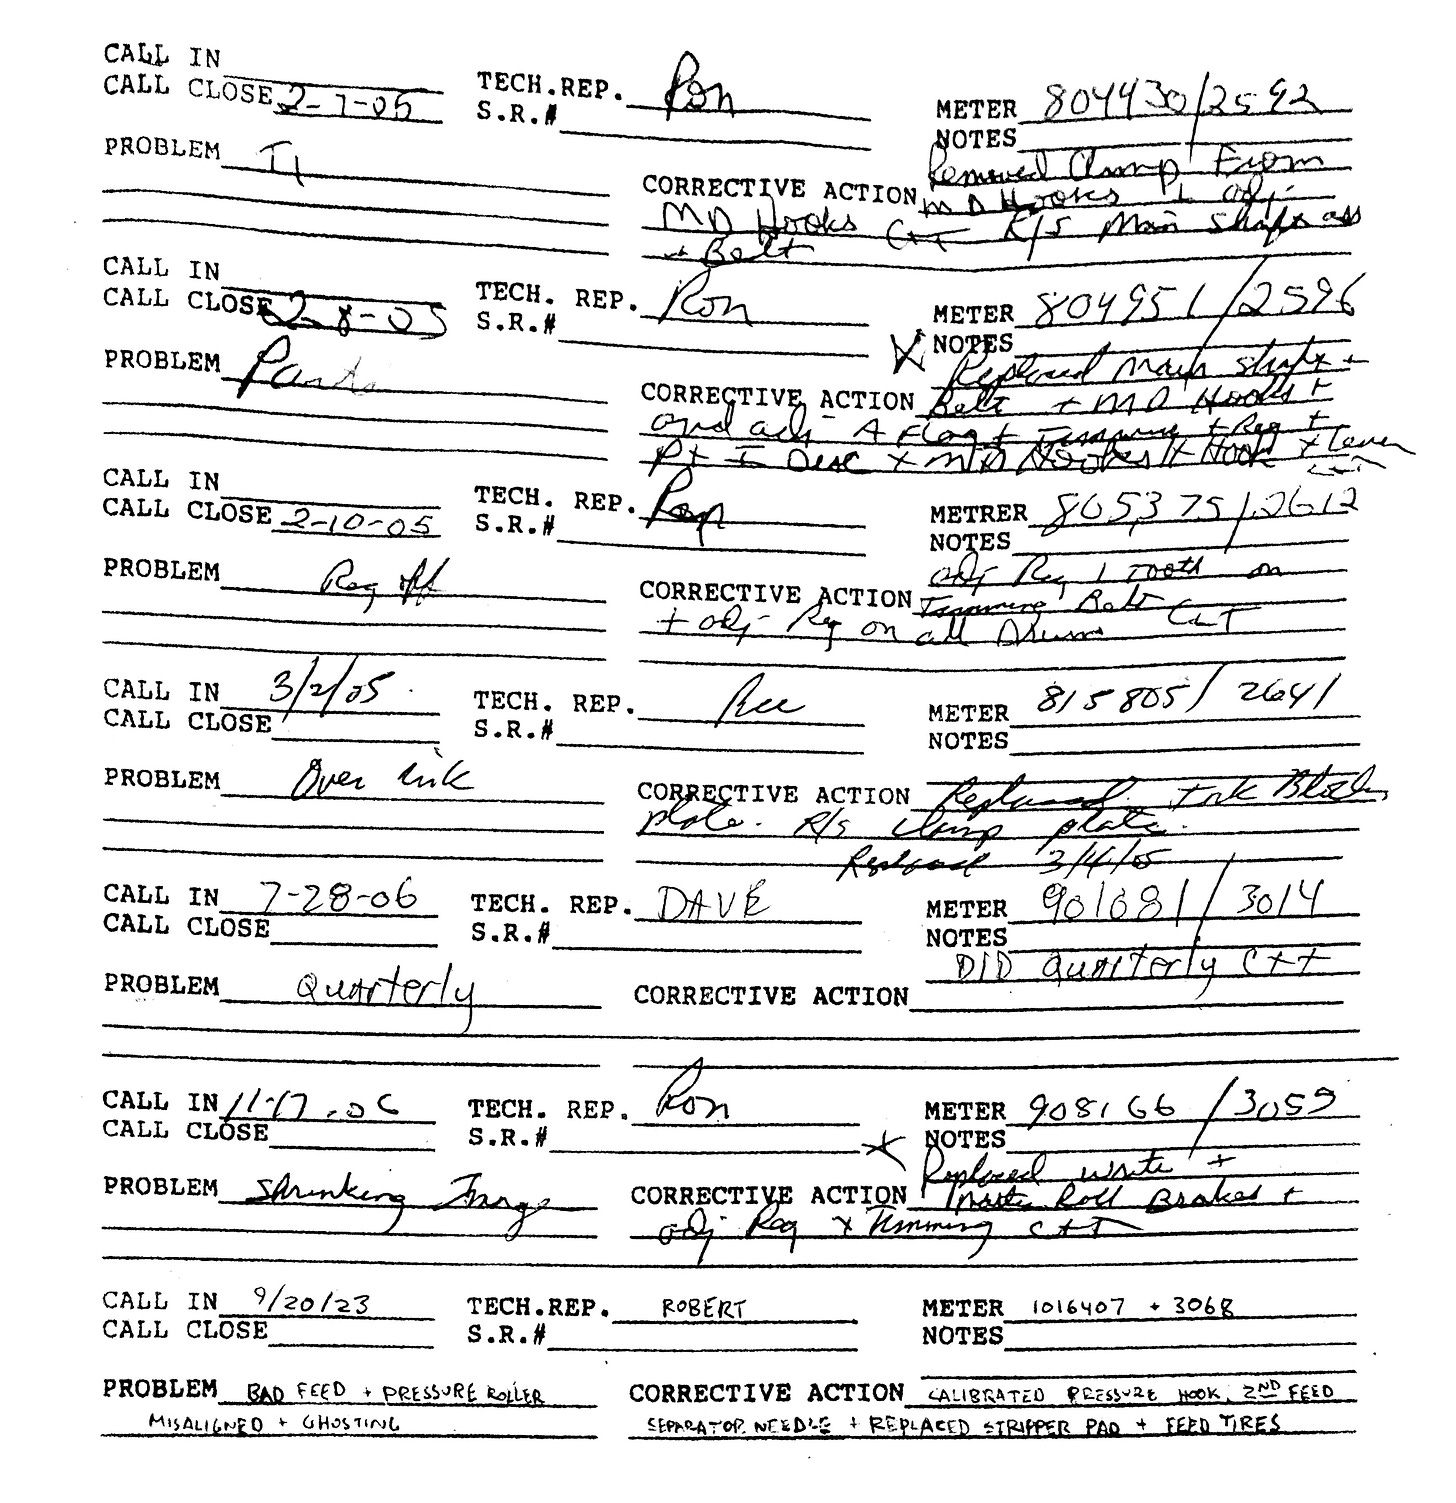 CALL IN
CALL CLOSE 2-7-05 TECH.REP. Ron METER 804430/2592
S.R.# NOTES
PROBLEM
Removed Clamp From
CORRECTIVE ACTION MD Hooks + adj.
MD Hooks C+T R/S Main Shaft ass
+ Belt
CALL IN
CALL CLOSE 2-8-05 TECH. REP. Ron METER 804951/2596
S.R.# NOTES
PROBLEM Parts
Replaced Main shaft +
CORRECTIVE ACTION Belt + MD Hooks +
and adj A Flag + Timming + Reg +
+ I Disc + MD Hooks + Hook + Lever
CALL IN
CALL CLOSE 2-10-05 TECH. REP. Ron METRER 805375/2612
S.R.# NOTES
PROBLEM Reg off
adj Reg 1 Tooth on
CORRECTIVE ACTION Timming Belt C+T
+ adj- Reg on all Drums
CALL IN 3/2/05 TECH. REP. METER 815805/2641
CALL CLOSE S.R.# NOTES
PROBLEM Over ink
CORRECTIVE ACTION Replaced Ink Block
plate. R/S clamp plate.
Replaced 3/4/05
CALL IN 7-28-06 TECH. REP. DAVE METER 901081/3014
CALL CLOSE S.R.# NOTES
DID Quarterly C++
PROBLEM Quarterly CORRECTIVE ACTION
CALL IN 11-17-06 TECH. REP. Ron METER 908166/3059
CALL CLOSE S.R.# NOTES
Replaced write +
PROBLEM Shrinking Image CORRECTIVE ACTION Master Roll Brakes +
adj Reg + Timming C+T
CALL IN 9/20/23 TECH.REP. ROBERT METER 1016407 + 3068
CALL CLOSE S.R.# NOTES
PROBLEM BAD FEED + PRESSURE ROLLER CORRECTIVE ACTION CALIBRATED PRESSURE HOOK, 2ND FEED
MISALIGNED + GHOSTING SEPARATOR NEEDLE + REPLACED STRIPPER PAD + FEED TIRES